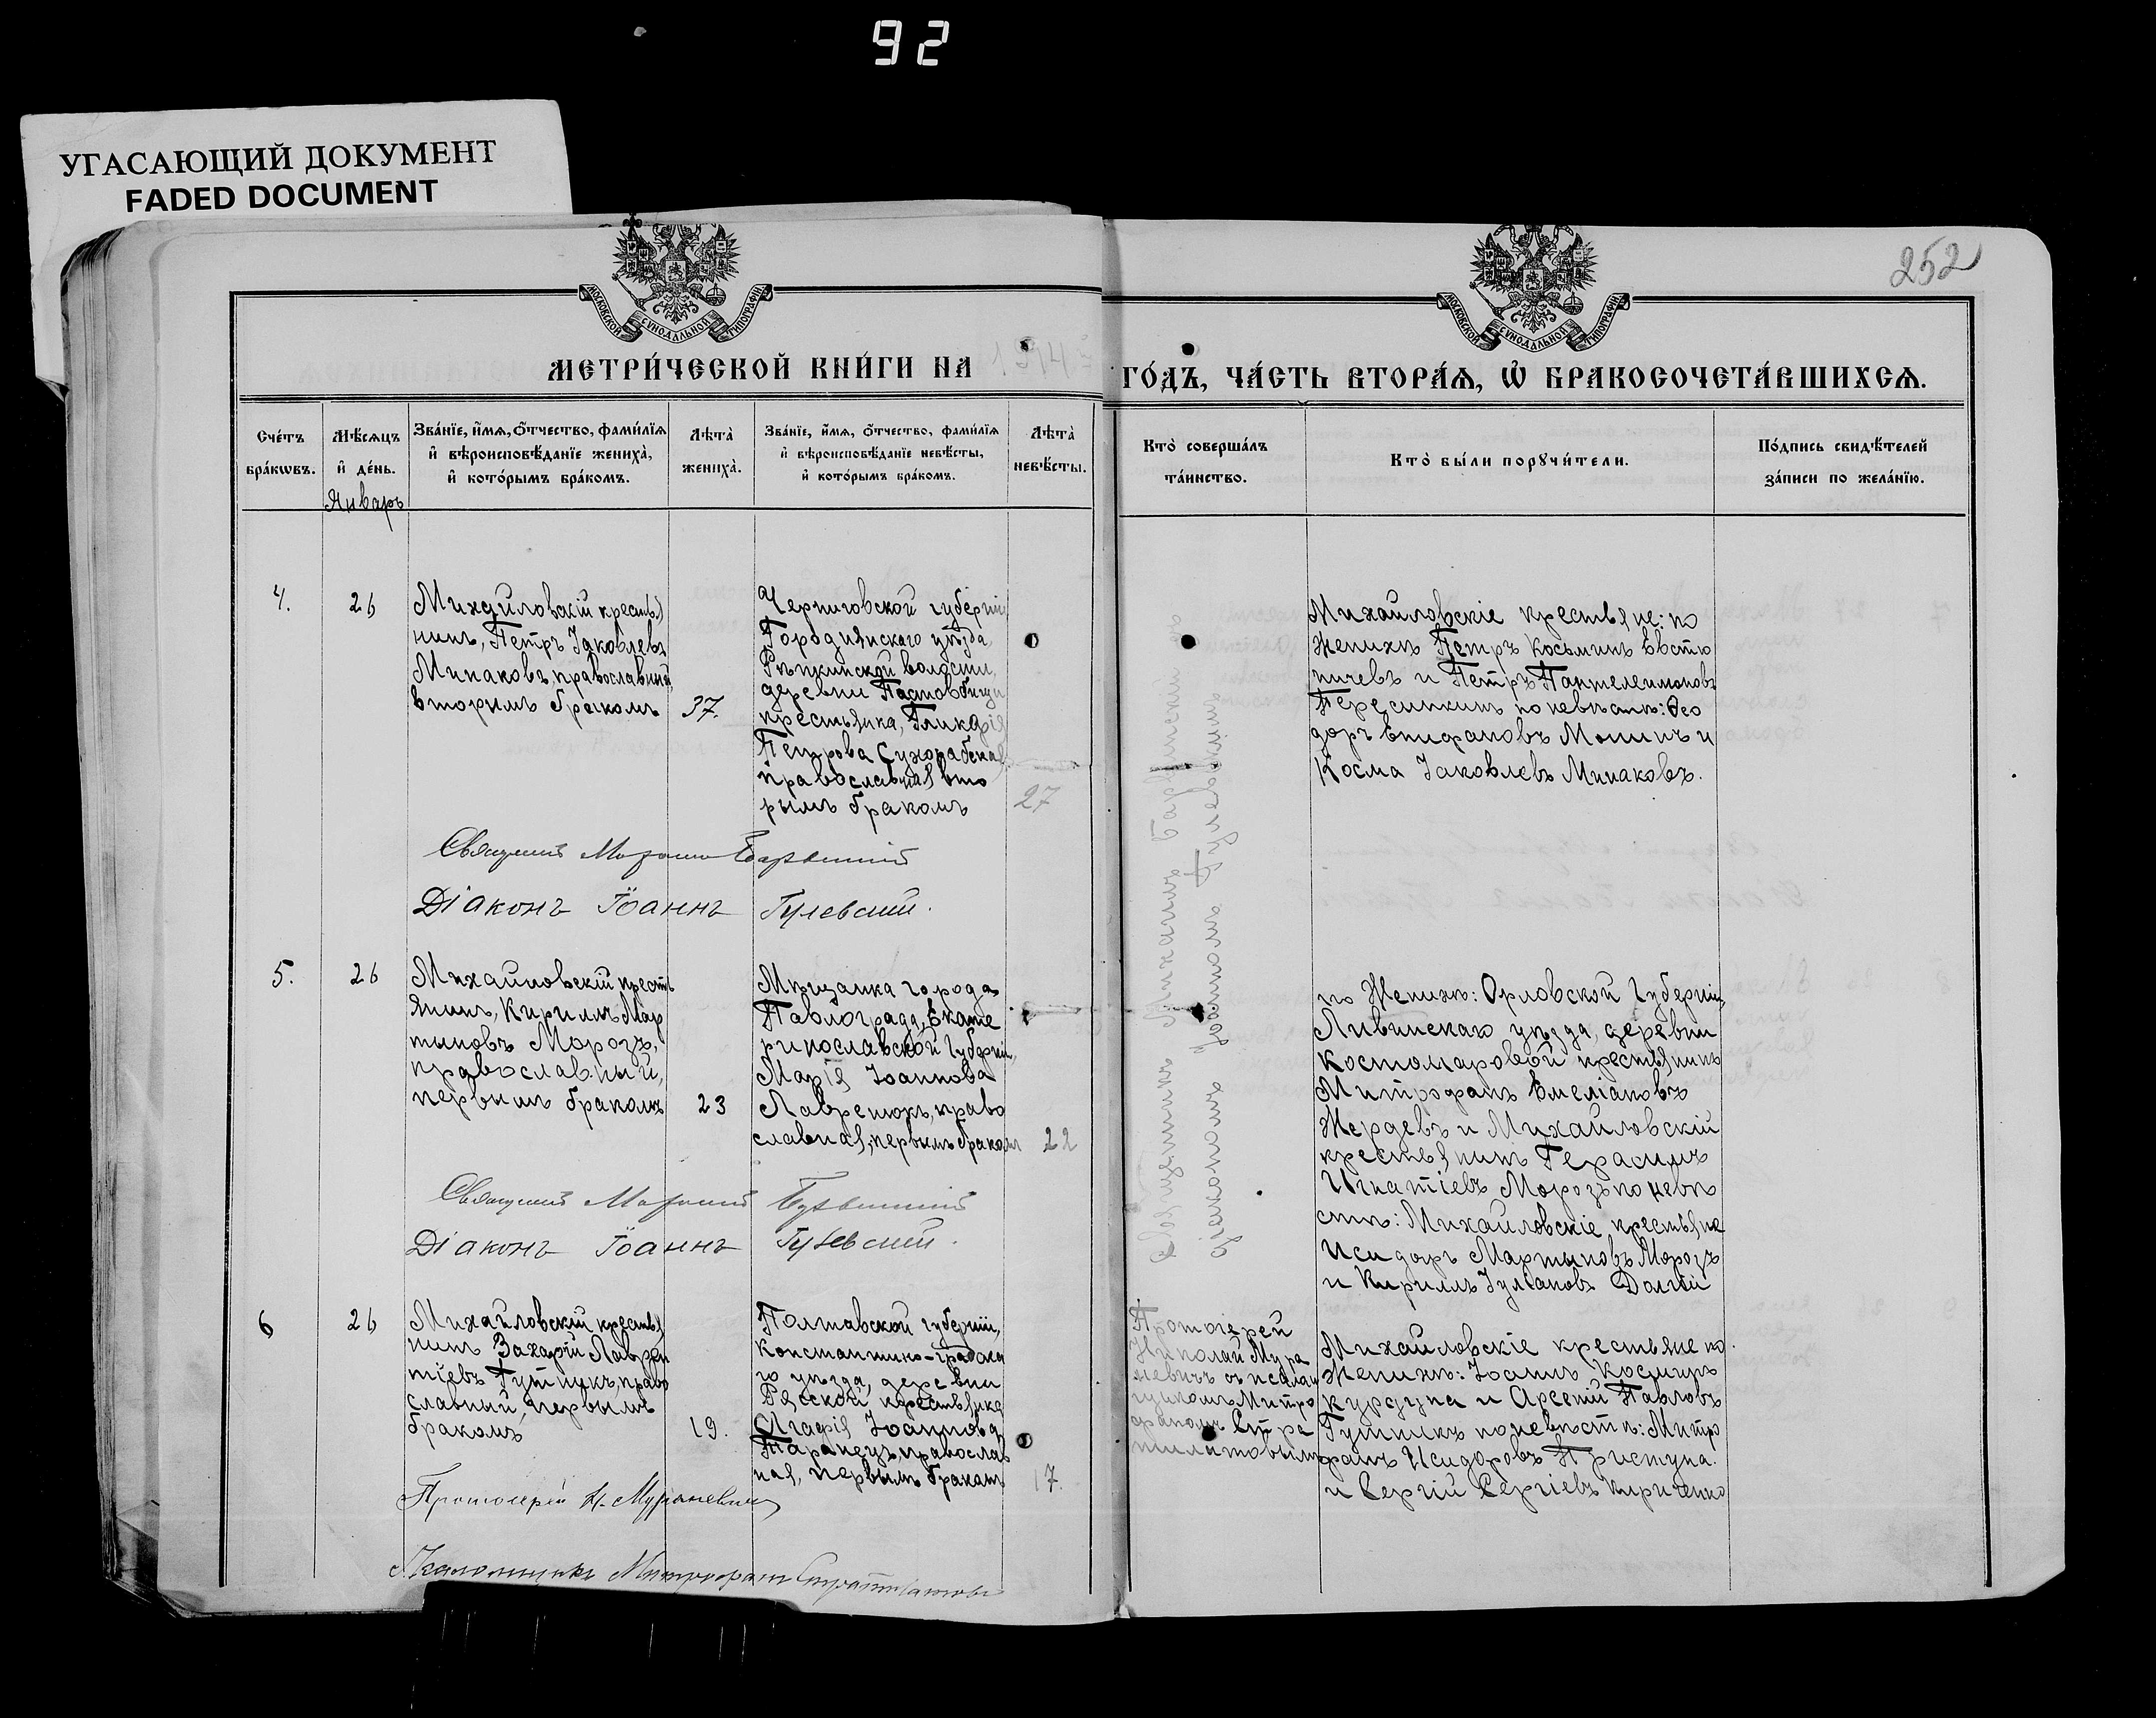 92
УГАСАЮЩИЙ ДОКУМЕНТ
FADED DOCUMENT
252
МОСКОВСКОЙ СѴНОДАЛЬНОЙ ТИПОГРАФІИ
МОСКОВСКОЙ СѴНОДАЛЬНОЙ ТИПОГРАФІИ
МЕТРИ́ЧЕСКОЙ КНИ́ГИ НА
ГО́ДЪ, ЧА́СТЬ ВТОРА́Ѧ, Ѽ БРАКОСОЧЕТА́ВШИХСѦ.
Сче́тъ
бра́кѡвъ.
Мѣ́сѧцъ
и҆ де́нь.
Январь
Зва́нїе, и҆́мѧ, ѻ҆́тчество, фами́лїѧ
и҆ вѣроисповѣ́данїе жениха̀,
и҆ кото́рымъ бра́комъ.
Лѣта̀
жениха̀.
Зва́нїе, и҆́мѧ, ѻ҆́тчество, фами́лїѧ
и҆ вѣроисповѣ́данїе невѣ́сты,
и҆ кото́рымъ бра́комъ.
Лѣта̀
невѣ́сты.
Кто̀ соверша́лъ
та́инство.
Кто̀ бы́ли порꙋчи́тели.
По́дпись свидѣ́телей
за́писи по жела́нїю.
4.
26
Михайловскій крестья
нинъ, Петръ Іаковлевъ
Минаковъ, православный,
вторымъ бракомъ
37.
Черниговской губерніи
Городнянскаго уѣзда,
Рѣпкинской волости,
деревни
крестьянка, Гликерія
Петрова
православная, вто
рымъ бракомъ
27
Михайловскіе крестьяне: по
женихѣ Петръ Косьминъ Евстю
ничевъ и Петръ Пантелеимоновъ
Пересыпкинъ по невѣстѣ: Ѳео
доръ Епифановъ Мошинъ и
Косма Іаковлевъ Минаковъ.
Священникъ
Діаконъ Іоаннъ Гулевскій.
5.
26
Михайловскій кресть
янинъ, Кириллъ Мар
тыновъ Морозъ,
православный,
первымъ бракомъ
23
Мѣщанка города
Павлограда, Екате
ринославской Губерніи,
Марія Іоаннова
Лавренюкъ, право
славная, первымъ бракомъ
22
Священникъ Михаилъ
Діакономъ Іоанномъ Гулевскимъ
по Женихѣ: Орловской Губерніи,
Ливинскаго уѣзда, деревни
Костомаровой крестьянинъ
Митрофанъ Емеліановъ
Жердевъ и Михайловскій
крестьянинъ Герасимъ
Игнатіевъ Морозъ по невѣ
стѣ: Михайловскіе крестьяне
Исидоръ Мартыновъ Морозъ
и Кириллъ Іуліановъ Долгій
Священникъ
Діаконъ Іоаннъ Гулевскій.
6
26
Михайловскій крестья
нинъ Захарій Лаврен
тіевъ Гутникъ, право
славный, первымъ
бракомъ
19.
Полтавской губерніи,
Константино-градска
го уѣзда, деревни
Рясской крестьянка
Агафія Іоаннова
Таранецъ, православ
ная, первымъ бракомъ
17.
Протоіерей
Николай Мура
невичъ съ псалом
щикомъ Митро
фаномъ Стра
тилатовымъ
Михайловскіе крестьяне по
Женихѣ: Іоаннъ Космичъ
Курдупа и Арсеній Павловъ
Гутникъ по невѣстѣ: Митро
фанъ Исидоровъ Приступа.
и Сергій Сергіевъ Кириченко
Протоіерей Н. Мураневичъ
Псаломщикъ Митрофанъ Стратилатовъ